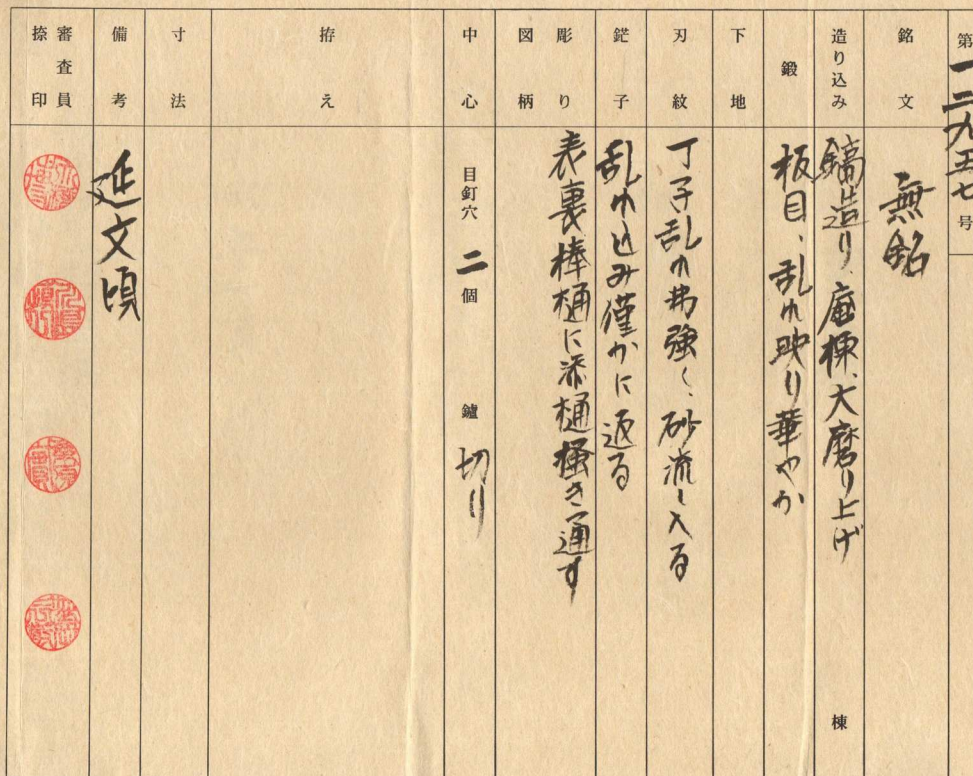 第一二九五七号
銘文 無銘
造り込み 鎬造り、庵棟、大磨り上げ 棟
鍛 板目、乱れ映り華やか
下地
刃紋 丁子乱れ沸強く、砂流し入る
鋩子 乱れ込み僅かに返る
彫り図柄 表裏棒樋に添樋掻き通す
中心 目釘穴 二個 鑢 切り
拵え
寸法
備考 延文頃
審査員捺印